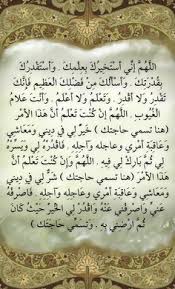 اللَّهُمَّ إِنِّي أَسْتَخِيرُكَ بِعِلْمِكَ . وَأَسْتَقْدِرُكَ
بِقُدْرَتِكَ . وَأَسْأَلُكَ مِنْ فَضْلِكَ العَظِيمِ فَإِنَّكَ
تَقْدِرُ وَلا أَقْدِرُ . وَتَعْلَمُ وَلا أَعْلَمُ . وَأَنْتَ عَلامُ
الغُيُوبِ . اللَّهُمَّ إِنْ كُنْتَ تَعْلَمُ أَنَّ هَذَا الأَمْرَ
(هنا تسمي حاجتك ) خَيْرٌ لِي فِي دِينِي وَمَعَاشِي
وَعَاقِبَةِ أَمْرِي وَعَاجِلِهِ وَآجِلِهِ . فَاقْدُرْهُ لِي وَيَسِّرْهُ
لِي ثُمَّ بَارِكْ لِي فِيهِ . اللَّهُمَّ وَإِنْ كُنْتَ تَعْلَمُ أَنَّ
هَذَا الأَمْرَ . (هنا تسمي حاجتك ) شَرٌّ لِي فِي دِينِي
وَمَعَاشِي وَعَاقِبَةِ أَمْرِي وَعَاجِلِهِ وَآجِلِهِ . فَاصْرِفْهُ
عَنِّي وَاصْرِفْنِي عَنْهُ وَاقْدُرْ لِي الخَيْرَ حَيْثُ كَانَ
ثُمَّ ارْضِنِي بِهِ . وَتُسَمِّي حَاجَتَكَ )